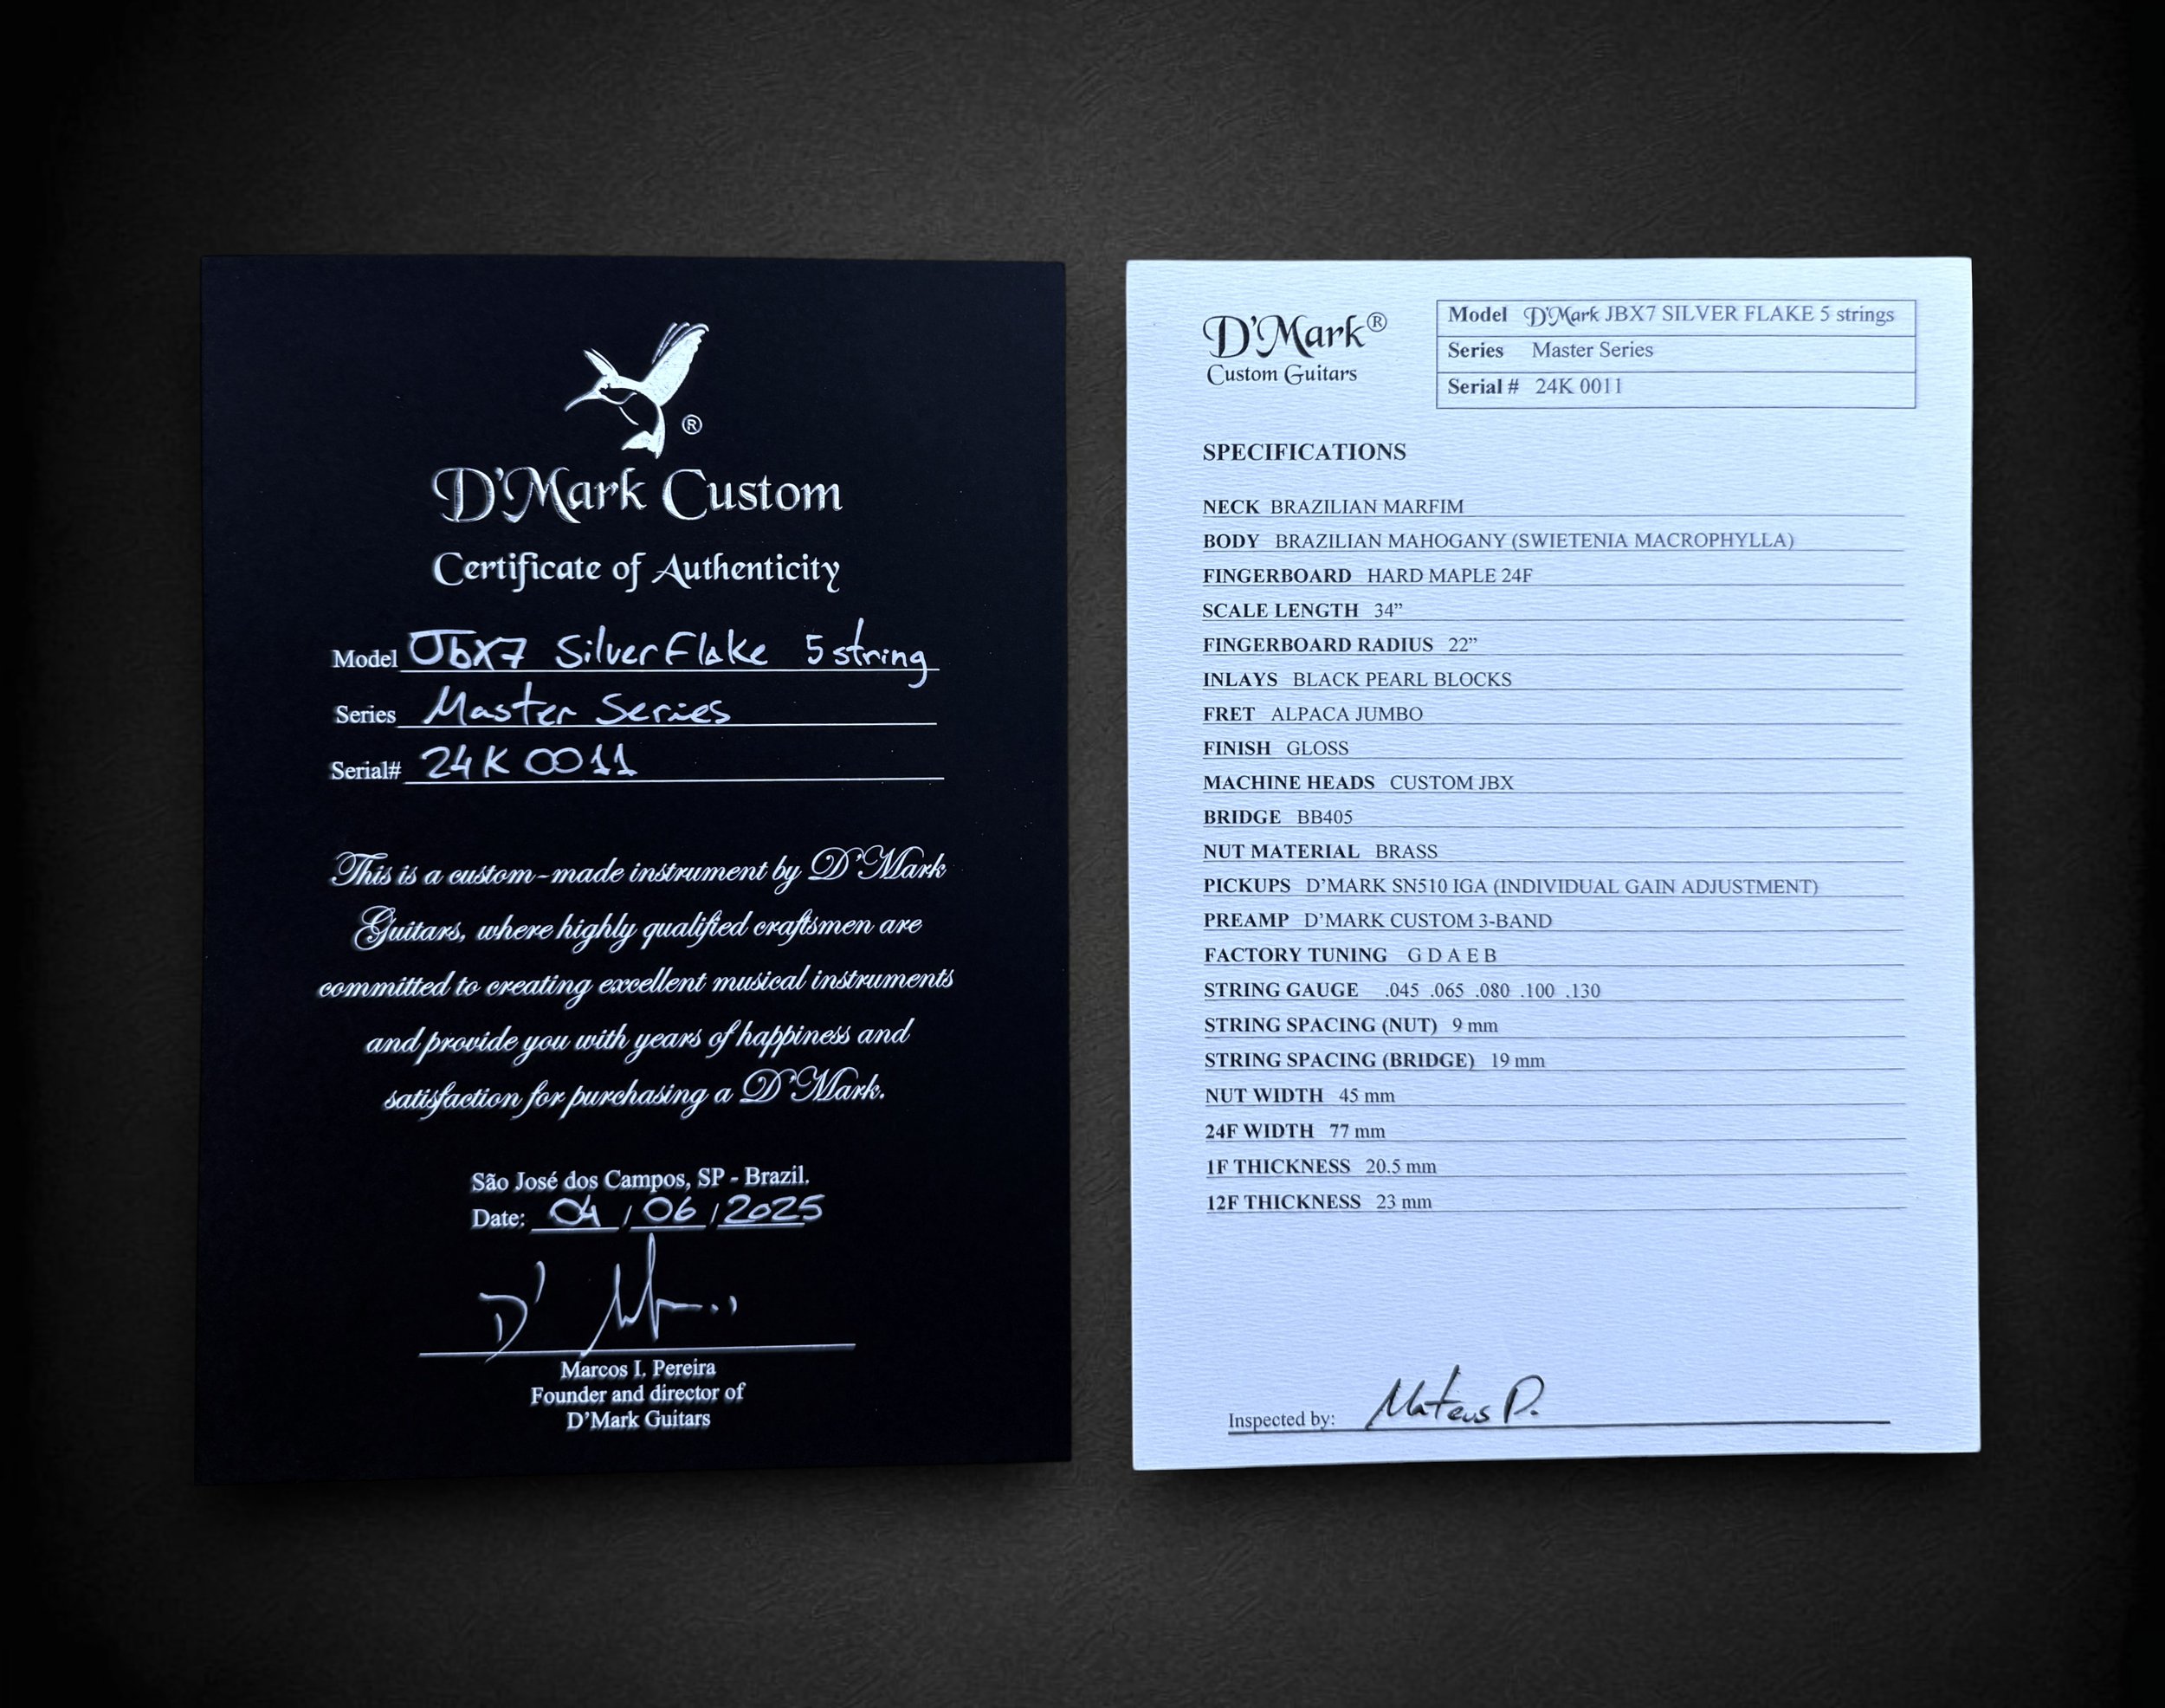 ®
D'Mark Custom
Certificate of Authenticity
Model JbX7 Silver Flake 5 string
Series Master Series
Serial# 24K 0011
This is a custom-made instrument by D'Mark
Guitars, where highly qualified craftsmen are
committed to creating excellent musical instruments
and provide you with years of happiness and
satisfaction for purchasing a D'Mark.
São José dos Campos, SP - Brazil.
Date: 04 / 06 / 2025
D'
Marcos I. Pereira
Founder and director of
D'Mark Guitars
D'Mark®
Custom Guitars
Model D'Mark JBX7 SILVER FLAKE 5 strings
Series Master Series
Serial # 24K 0011
SPECIFICATIONS
NECK BRAZILIAN MARFIM
BODY BRAZILIAN MAHOGANY (SWIETENIA MACROPHYLLA)
FINGERBOARD HARD MAPLE 24F
SCALE LENGTH 34”
FINGERBOARD RADIUS 22”
INLAYS BLACK PEARL BLOCKS
FRET ALPACA JUMBO
FINISH GLOSS
MACHINE HEADS CUSTOM JBX
BRIDGE BB405
NUT MATERIAL BRASS
PICKUPS D’MARK SN510 IGA (INDIVIDUAL GAIN ADJUSTMENT)
PREAMP D’MARK CUSTOM 3-BAND
FACTORY TUNING G D A E B
STRING GAUGE .045 .065 .080 .100 .130
STRING SPACING (NUT) 9 mm
STRING SPACING (BRIDGE) 19 mm
NUT WIDTH 45 mm
24F WIDTH 77 mm
1F THICKNESS 20.5 mm
12F THICKNESS 23 mm
Inspected by: Mateus P.